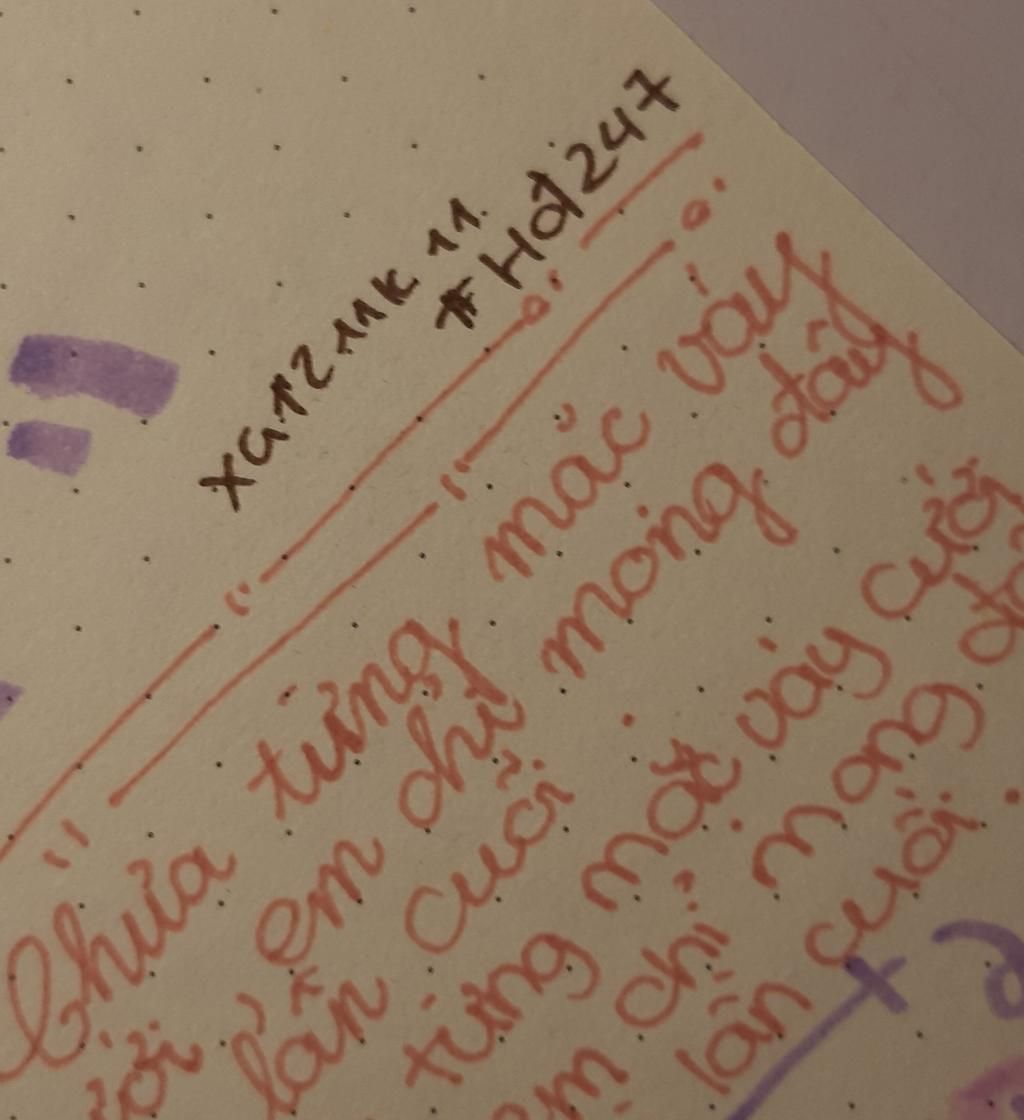 xa1211k 11.
#Hd1247
Chưa từng mặc váy
cưới em chỉ mong đây
lần cuối.
từng một váy cưới
em chỉ mong
lần cuối.